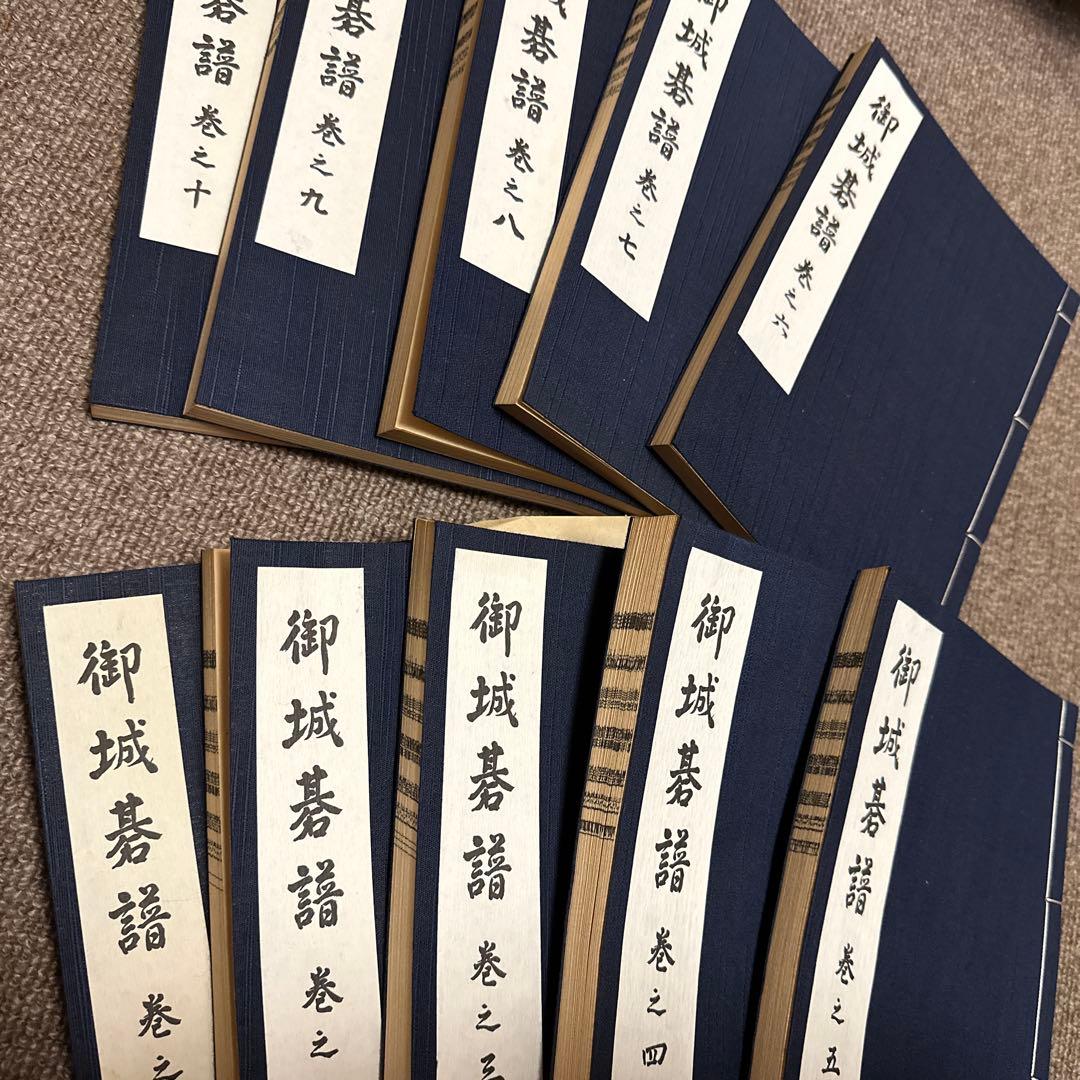 碁譜 巻之十
碁譜 巻之九
碁譜 巻之八
御城碁譜 巻之七
御城碁譜 巻之六
御城碁譜 巻之
御城碁譜 巻之
御城碁譜 巻之三
御城碁譜 巻之四
御城碁譜 巻之五